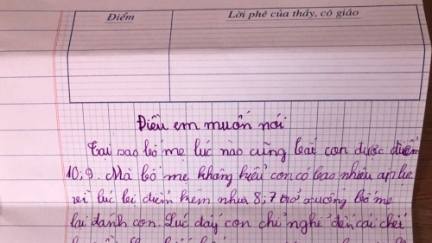 Điểm
Lời phê của thầy, cô giáo
Điều em muốn nói
Tại sao bố mẹ lúc nào cũng bắt con được điểm
10; 9. Mà bố mẹ không hiểu con có bao nhiêu áp lực
với lúc bị điểm kém như 8; 7 trở xuống bố mẹ
lại đánh con. Lúc đấy con chỉ nghĩ đến cái chết